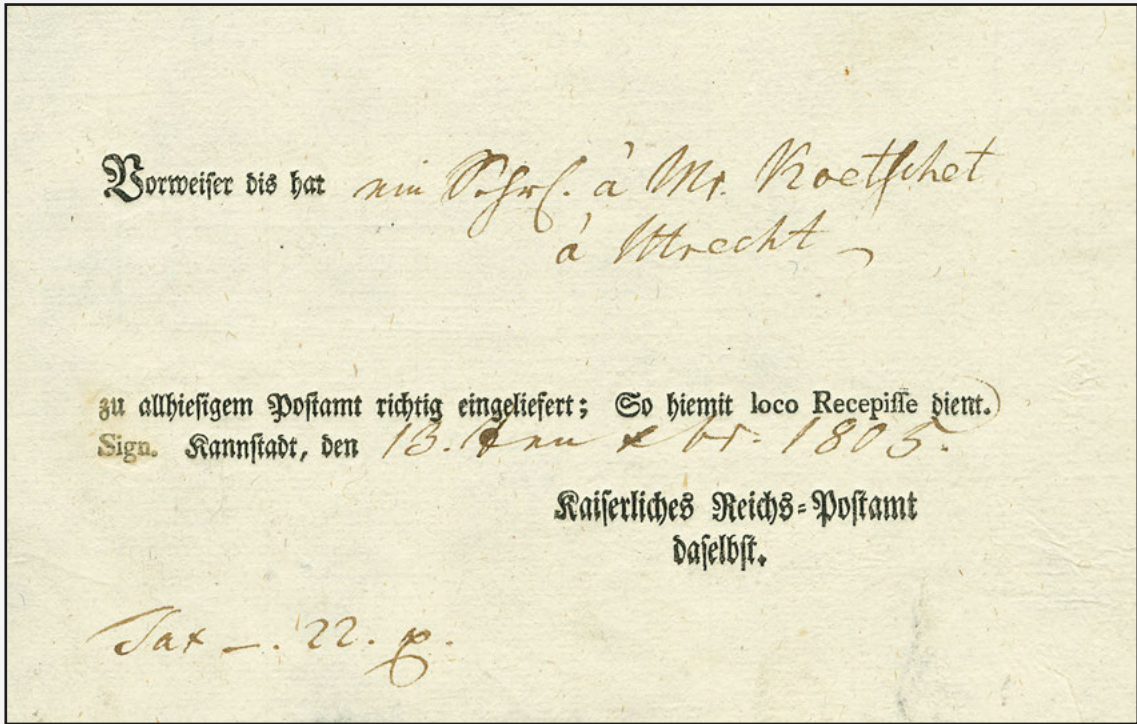 Vorweiser dis hat ein Schr. à Mr. Koetschet
à Utrecht
zu allhiesigem Postamt richtig eingeliefert; So hiemit loco Recepisse dient.
Sign. Kannstadt, den 13. ten xbr. 1805.
Kaiserliches Reichs-Postamt
daselbst.
Tax —. 22. x.